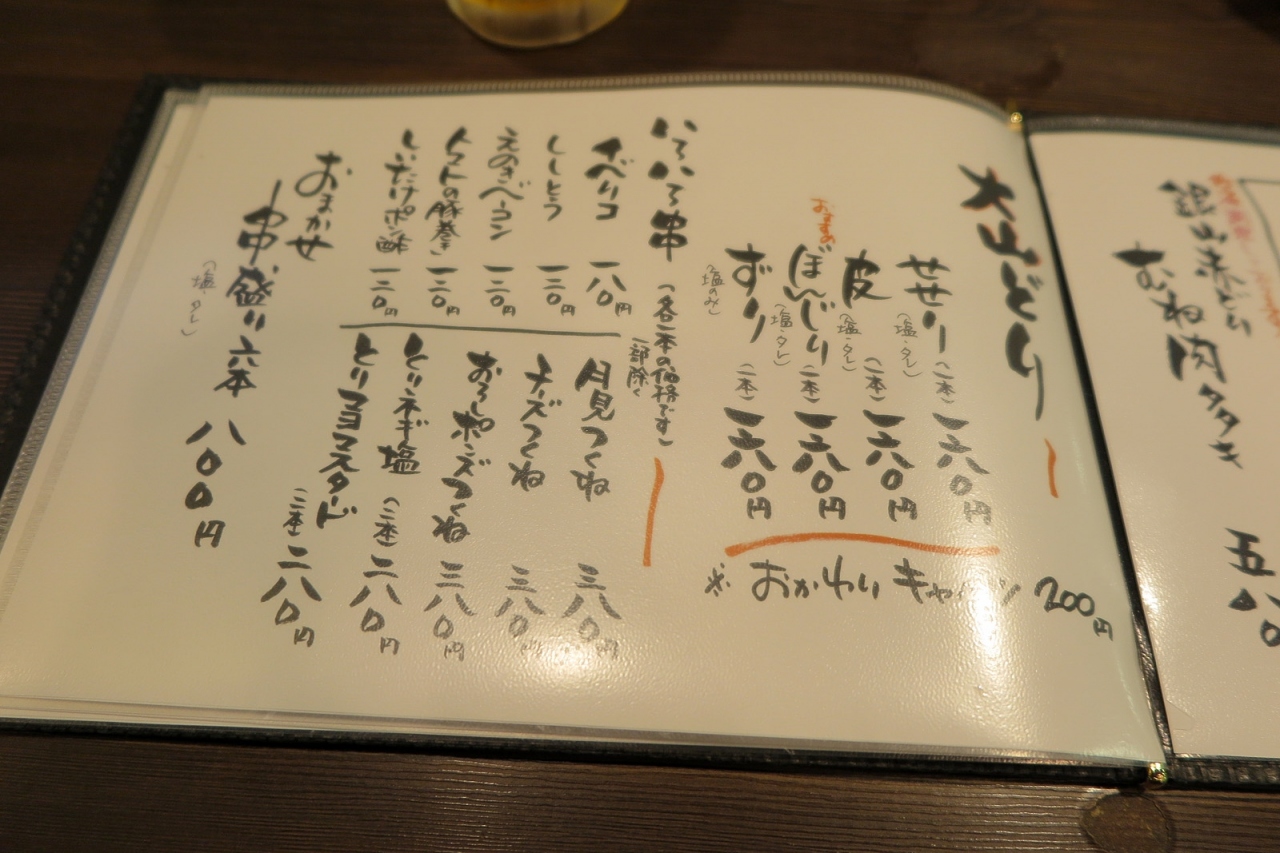 むね肉タタキ 五八〇
大山どり
せせり(塩・タレ)(一本)一六〇円
皮(塩・タレ)(一本)一六〇円
おすすめ
ぼんじり(塩・タレ)(一本)一六〇円
ずり(塩のみ)(一本)一六〇円
※おかわりキャベツ 200円
いろいろ串(各一本の価格です)
一部除く
イベリコ 一八〇円
ししとう 一二〇円
えのきベーコン 一二〇円
トマトの豚巻き 一二〇円
しいたけポン酢 一二〇円
月見つくね 三八〇円
チーズつくね 三八〇円
おろしポンズつくね 三八〇円
とりネギ塩(二本)二八〇円
とりマヨマスタード(二本)二八〇円
おまかせ
串盛り六本 八〇〇円
(塩・タレ)